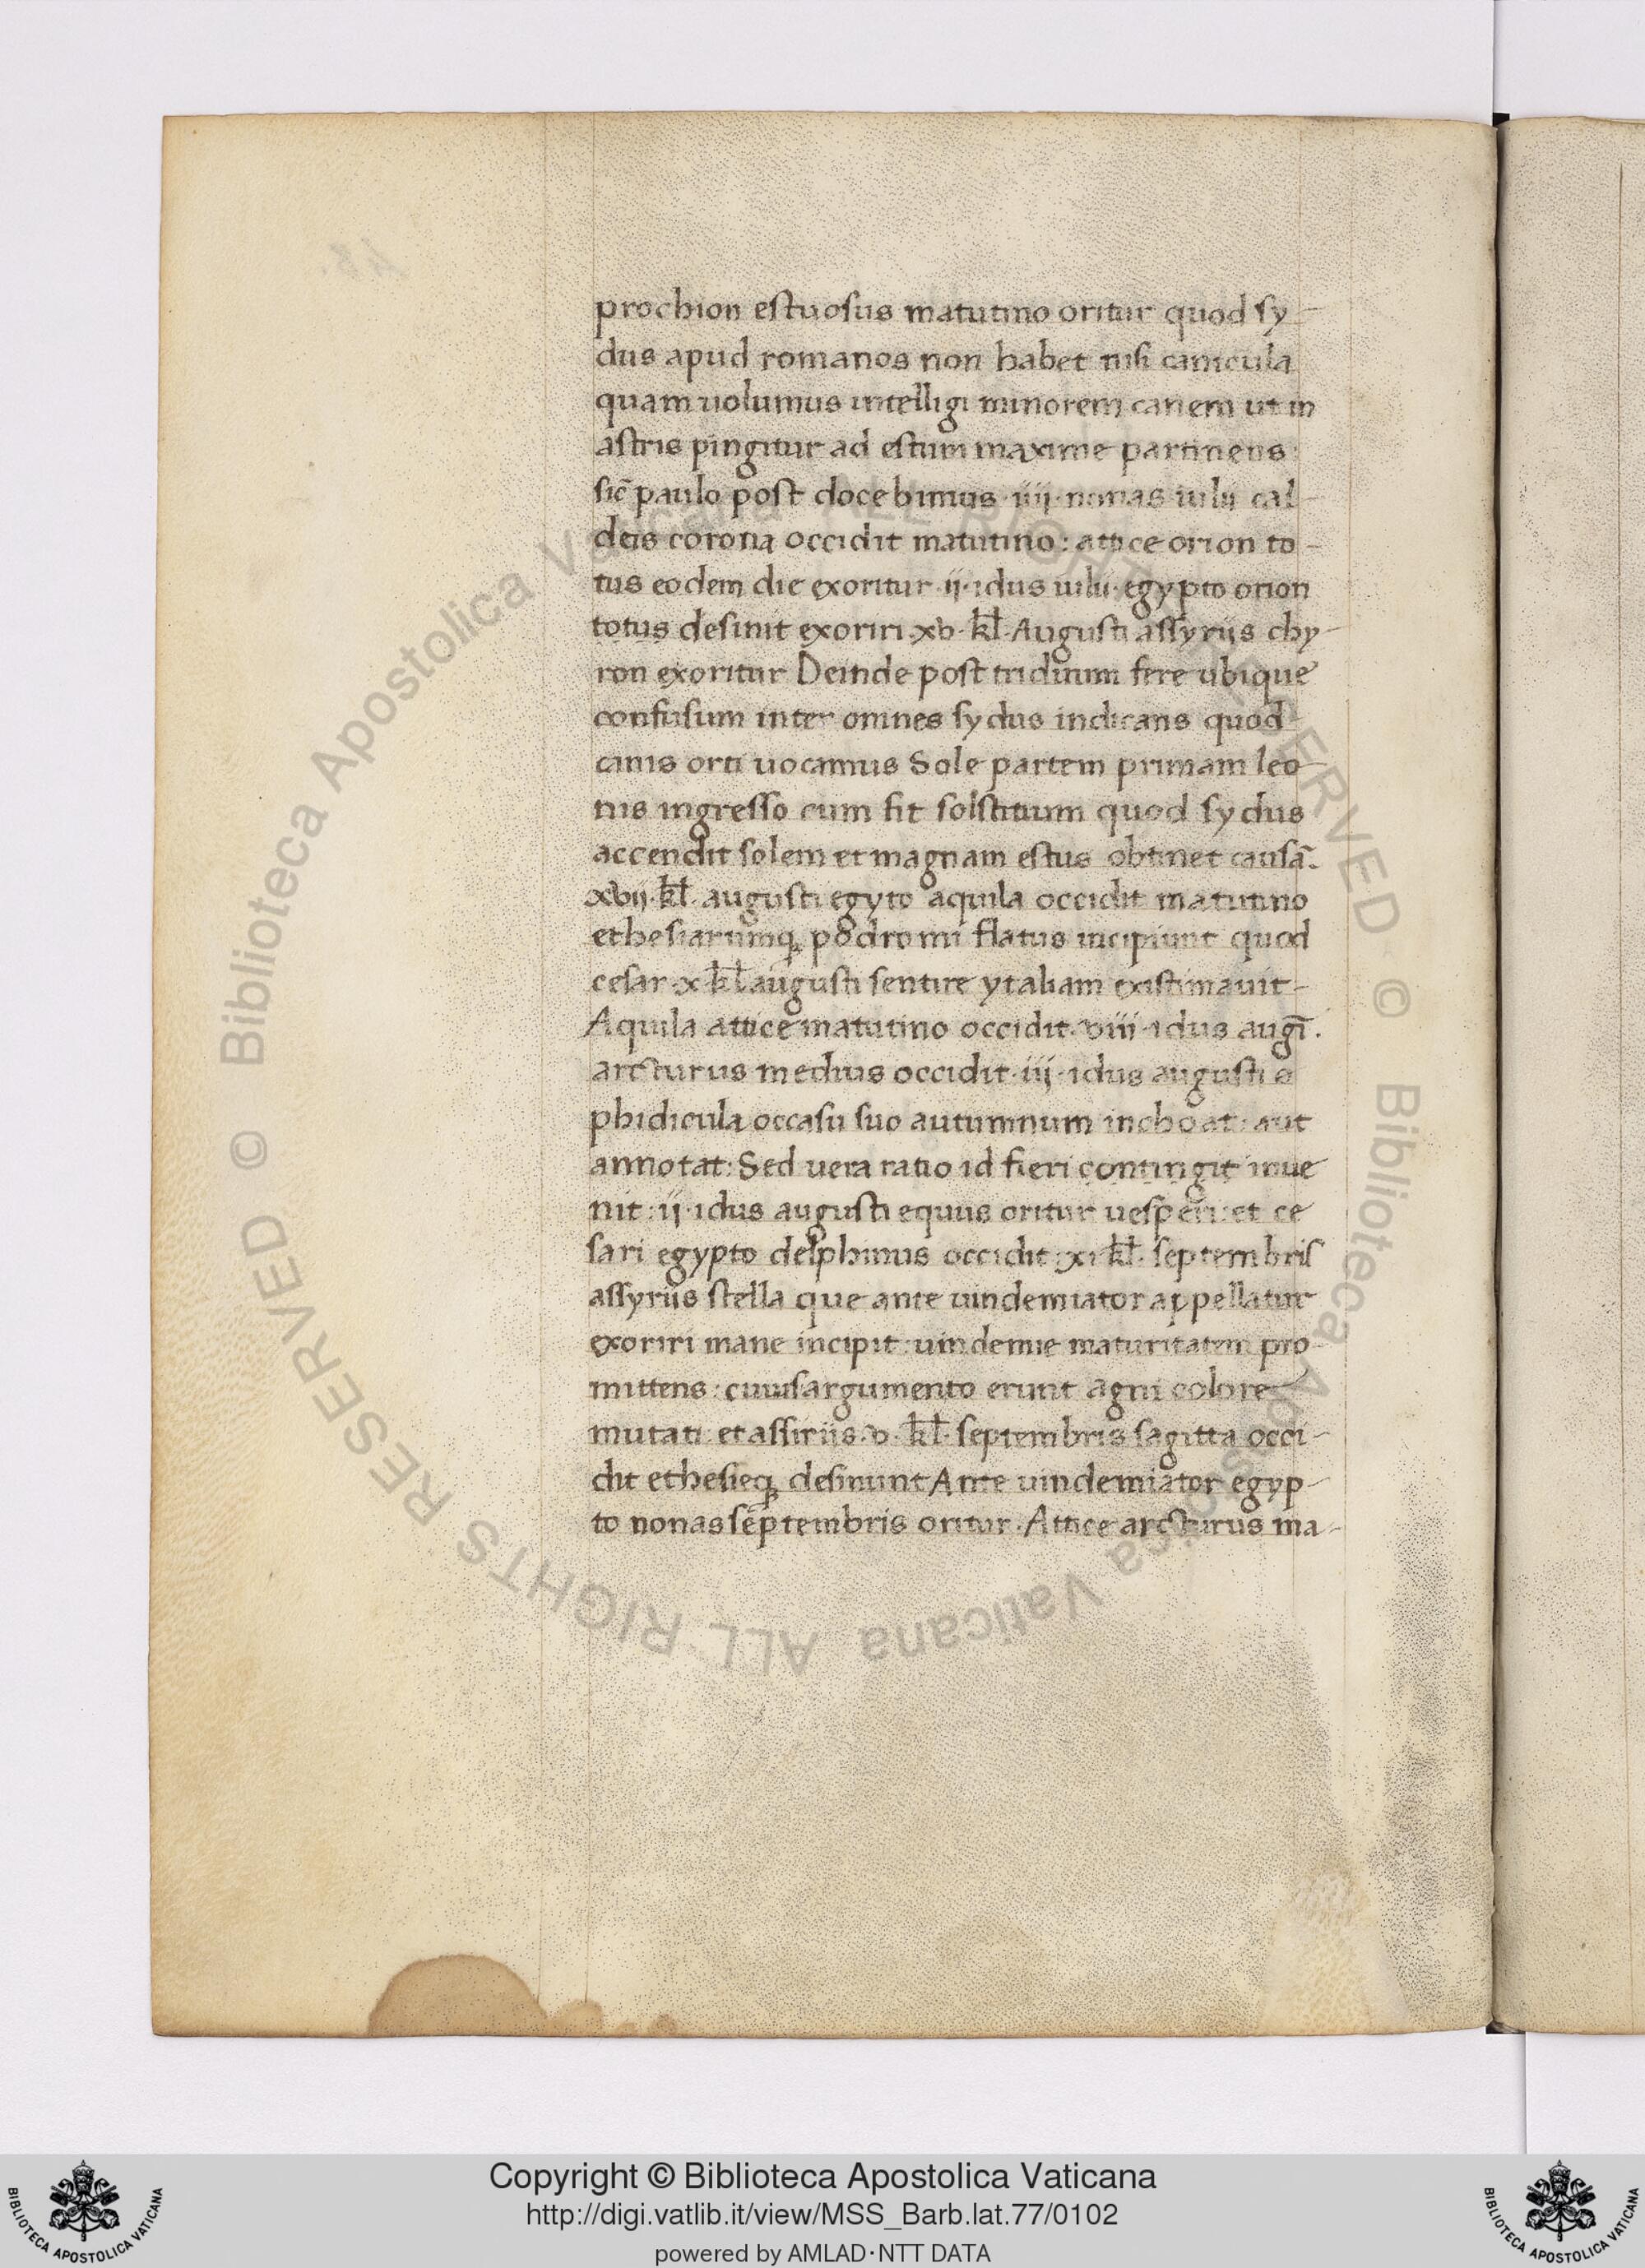 prochion estuosus matutino oritur quod sy-
dus apud romanos non habet nisi canicula
quam uolumus intelligi minorem canem ut in
astris pingitur ad estum maxime partinens:
sic̄ paulo post docebimus·iiij·nonas iulii cal-
deis corona occidit matutino: attice orion to-
tus eodem die exoritur·ij·idus iulii·egypto orion
totus desinit exoriri·xv·kl̄·Augusti assyriis chy-
ron exoritur Deinde post triduum fere ubique
confusum inter omnes sydus indicans quod
canis orti uocamus Sole partem primam leo-
nis ingresso cum fit solstitium quod sydus
accendit solem et magnam estus obtinet causā.
xvij·kl̄·augusti egyto aquila occidit matutino
ethesiarumq; p8dromi flatus incipiunt quod
cesar·x·kl̄ augusti sentire ytaliam existimauit-
Aquila attice matutino occidit·viii·idus augī.
arcturus medius occidit·iij·idus augusti
phidicula occasu suo autumnum inchoat: aut
annotat: Sed uera ratio id fieri contingit inue
nit: ij·idus augusti equus oritur uesperi: et ce
sari egypto delphinus occidit: xi kl̄· septembris
assyriis stella que ante uindemiator appellatur
exoriri mane incipit: uindemie maturitatem pro
mittens: cuius argumento erunt agni colore
mutati et assiriis·v·kl̄·septembris sagitta occi-
dit ethesieq; desinunt Ante uindemiator egyp-
to nonas septembris oritur·Attice arcturus ma-
© Biblioteca Apostolica Vaticana ALL RIGHTS RESERVED
© Biblioteca Apostolica Vaticana ALL RIGHTS RESERVED
BIBLIOTECA APOSTOLICA VATICANA
Copyright © Biblioteca Apostolica Vaticana
http://digi.vatlib.it/view/MSS_Barb.lat.77/0102
powered by AMLAD·NTT DATA
BIBLIOTECA APOSTOLICA VATICANA